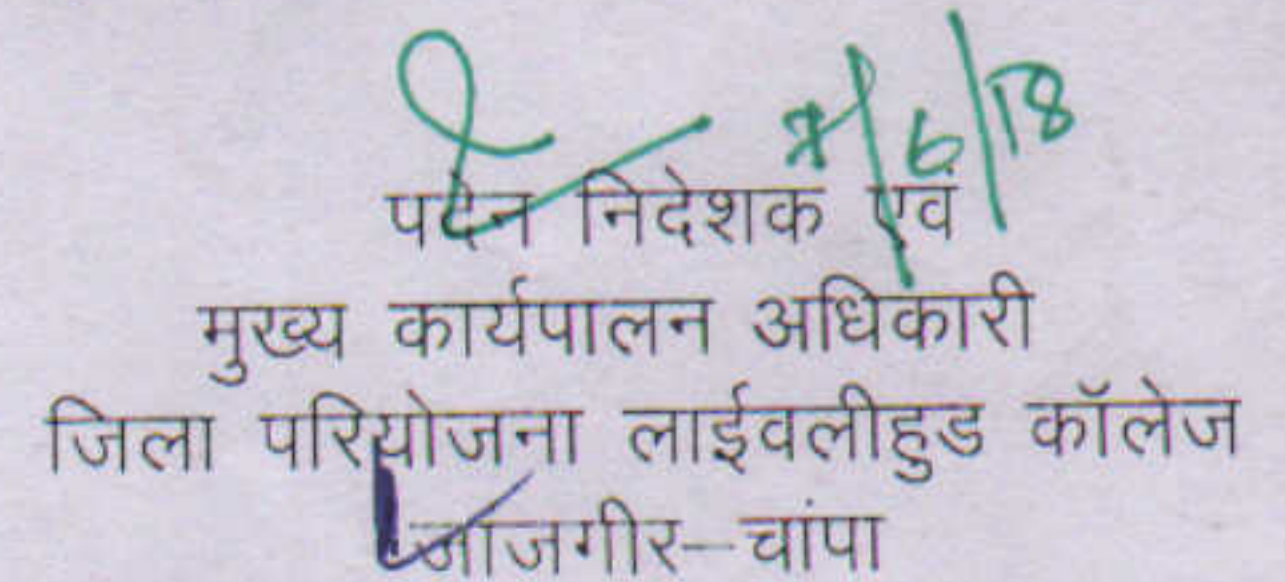 7/6/18
पदेन निदेशक एवं
मुख्य कार्यपालन अधिकारी
जिला परियोजना लाईवलीहुड कॉलेज
जांजगीर–चांपा